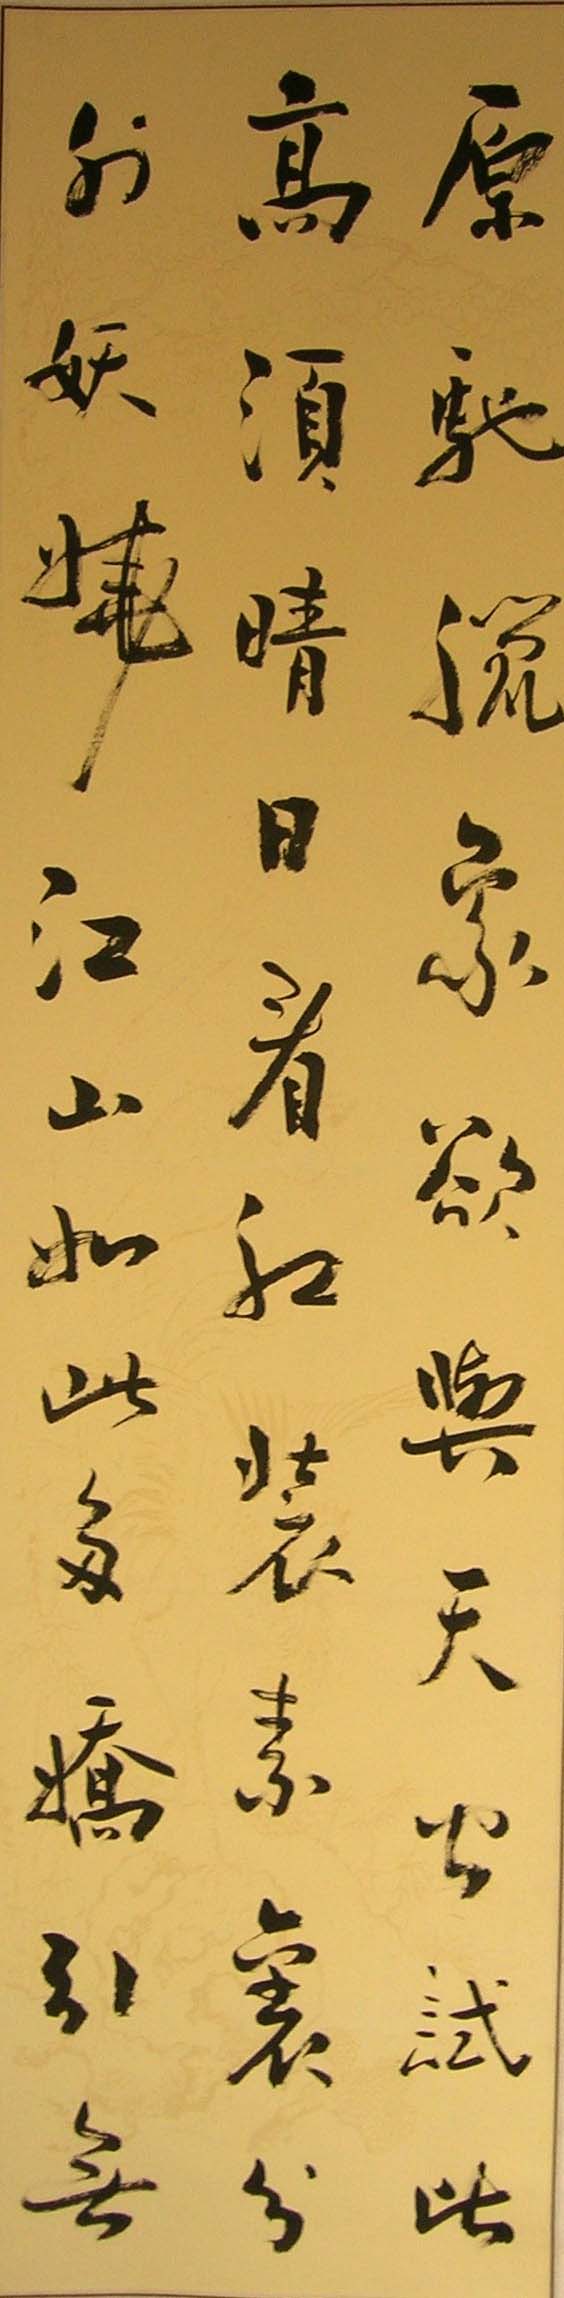 原馳臘象欲與天公試比
高須晴日看紅裝素裹分
外妖嬈江山如此多嬌引無